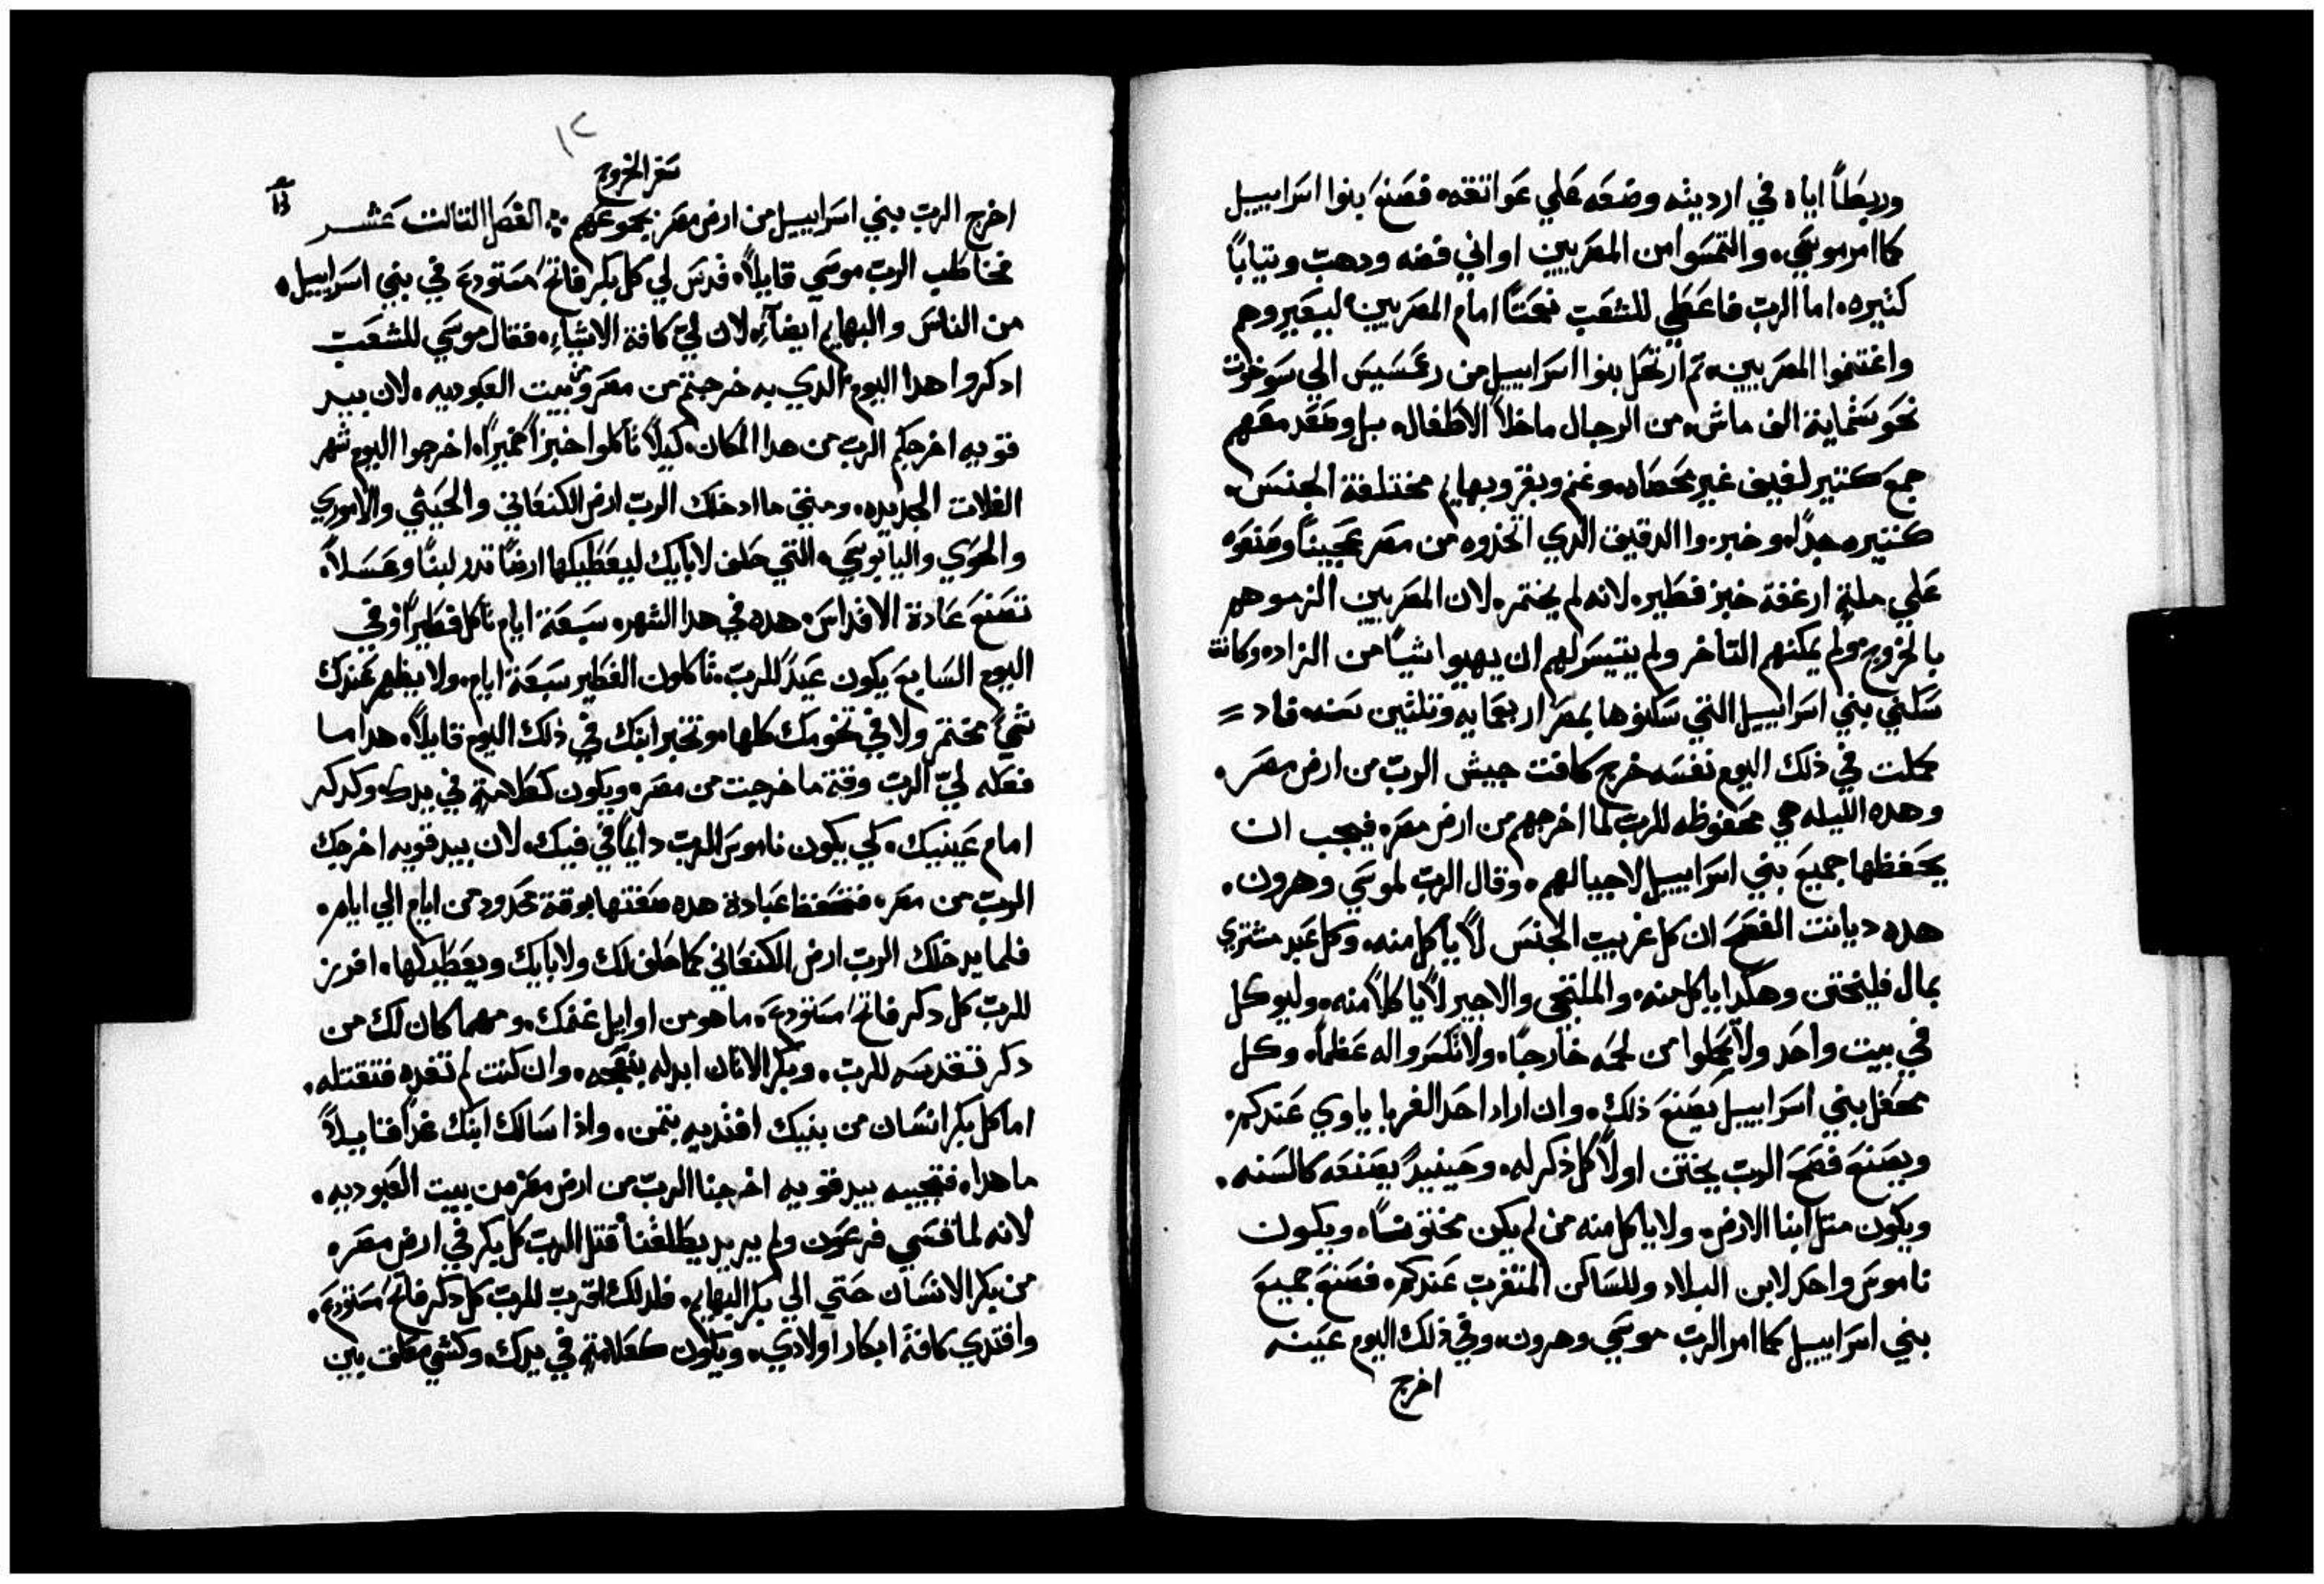 وربطاً اياه في ارديته وضعه علي عواتقه. فصنع بنوا اسراييل
كاامر موسي. والتمسوا من المصريين اواني فضه ودهب وتياباً
كتيره. اما الرب فاعطي للشعب نعمتاً امام المصريين ليعيروهم
واغتنموا المصريين. تم ارتحل بنوا اسراييل من رعمسيس الي سوخوت
نحو ستماية الف ماش. من الرجال ماخلا الاطفال. بل وصعد معهم
جمع كتير لفيف غير محصاه. وغنم وبقر وبهايم مختلفة الجنس.
كتيره جداً. وخبزوا الدقيق الدي اتخذوه من مصر عجيناً وصنعوه
علي ملة ارغفة خبز فطير. لانه لم يختمر. لان المصريين الزموهم
بالخروج. ولم يمكنهم التاخر ولم يتيسر لهم ان يهيوا شياً من الزاد. وكانت
سكني بني اسراييل التي سكنوها بمصر اربعمايه وتلتين سنه. فاد =
كملت في ذلك اليوم نفسه خرج كافت جيش الرب من ارض مصر.
وهده الليله هي محفوظه للرب لما اخرجهم من ارض مصر. فيجب ان
يحفظها جميع بني اسراييل لاجيالهم. وقال الرب لموسي وهرون.
هده ديانت الفصح ان كل غريب الجنس لا ياكل منه. وكل عبد مشتري
بمال فليختتن وهكدا ياكل منه. والملتجي والاجير لا ياكلا منه. وليوكل
في بيت واحد ولا تحملوا من لحمه خارجاً. ولا تكسروا له عظماً. وكل
محفل بني اسراييل يصنع ذلك. وان اراد احد الغربا ياوي عندكم.
ويصنع فصح الرب يختتن اولاً كل ذكر له. وحينيدً يصنعه كالسنه.
ويكون متل ابنا الارض. ولا ياكل منه من لم يكن مختوناً. ويكون
ناموس واحد لابن البلاد وللساكن المتغرب عندكم. فصنع جميع
بني اسراييل كما امر الرب موسي وهرون. وفي ذلك اليوم عينه
اخرج
١٢
سفر الخروج
اخرج الرب بني اسراييل من ارض مصر بجموعهم ؞ الفصل التالت عشر
فخاطب الرب موسي قايلاً. قدس لي كل بكر فاتح مستودع في بني اسراييل.
من الناس والبهايم ايضاً. لان لي كافة الاشياء. فقال موسي للشعب
ادكروا هدا اليوم الدي به خرجتم من مصر ومن بيت العبوديه. لان بيد
قويه اخرجكم الرب من هدا المكان. كيلا تاكلوا خبزاً خميراً. اخرجوا اليوم شهر
الغلات الجديده. ومتي ما ادخلك الرب ارض الكنعاني والحيتي والاموري
والحوي واليابوسي. التي حلف لابايك ليعطيكها ارضاً تدر لبناً وعسلاً.
تصنع عادة الاقداس. هده في هدا الشهر. سبعة ايام تاكل فطيراً وفي
اليوم السابع يكون عيدً للرب. تاكلون الفطير سبعة ايام. ولا يظهر عندك
شي مختمر ولا في تخومك كلها. وتخبر ابنك في ذلك اليوم قايلاً. هدا ما
فعله لي الرب وقتة ما خرجت من مصر. ويكون كعلامة في يدك. وكدكر
امام عينيك. لكي يكون ناموس الرب دايماً في فيك. لان بيد قويه اخرجك
الرب من مصر. فتحفظ عبادة هده صفتها بوقة محدود من ايام الي ايام.
فلما يدخلك الرب ارض الكنعاني كما حلف لك ولابايك ويعطيكها. افرز
للرب كل دكر فاتح مستودع. ما هو من اوايل غنمك. ومهما كان لك من
دكر تقدسه للرب. وبكر الاتان ابدله بنعجه. وان كنت لم تفده فتقتله.
اما كل بكر انسان من بنيك افتديه بتمن. واذا سالك ابنك غداً قايلاً
ما هدا. فتجيبه بيد قويه اخرجنا الرب من ارض مصر من بيت العبوديه.
لانه لما قسي فرعون ولم يريد يطلقنا قتل الرب كل بكر في ارض مصر.
من بكر الانسان حتي الي بكر البهايم. فلدلك اقرب للرب كل دكر فاتح مستودع.
وافتدي كافة ابكار اولادي. ويكون كعلامة في يدك. وكشي معلق بين